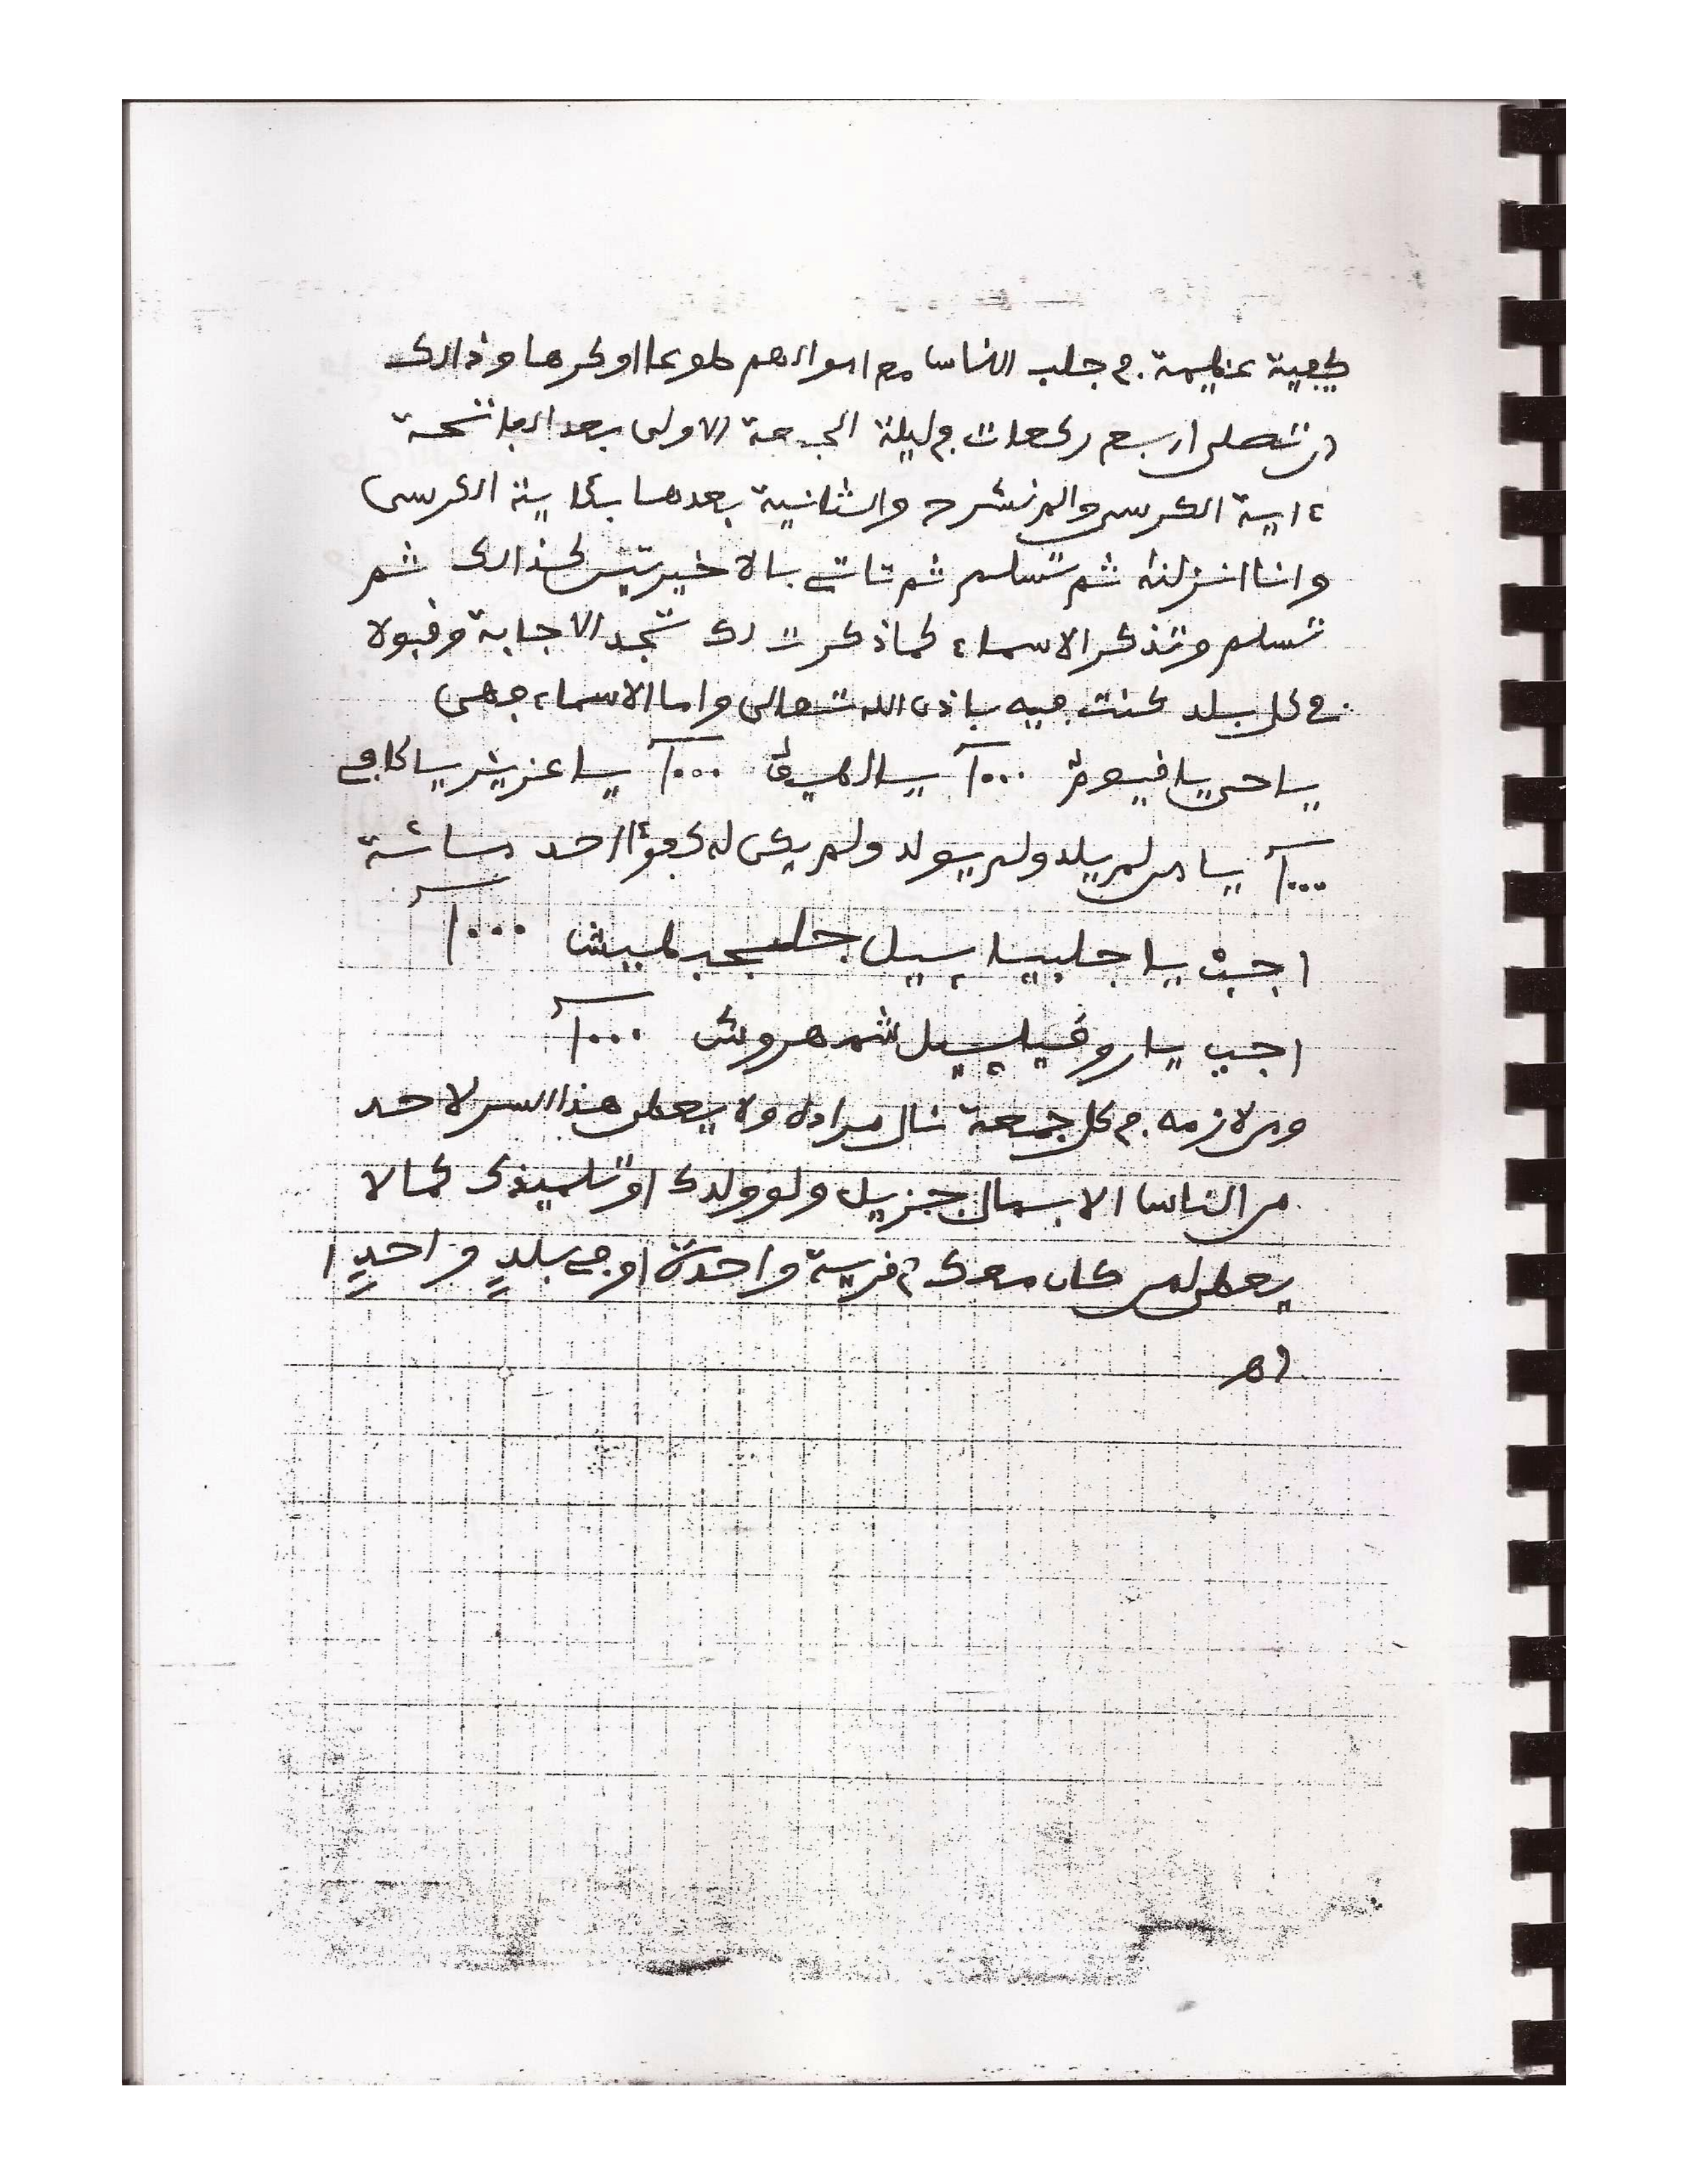 كيفية عظيمة في جلب الناس مع اموالهم طوعا او كرها وذالك
ان تصلى اربع ركعات في ليلة الجمعة الاولى بعد الفاتحة
ءاية الكرسى والم نشرح والثانية بعدها بئاية الكرسى
وانا انزلنه ثم تسلم ثم تاتي بالاخيرتين كذالك ثم
تسلم وتذكر الاسماء كما ذكرت لك تجد الاجابة وقبولا
في كل بلد كنت فيه باذن الله تعالى واما الاسماء فهى
يا حى يا قيوم ١٠٠٠ يا لطيف ١٠٠٠ يا عزيز يا كافي
١٠٠٠ يا من لم يلد ولم يولد ولم يكن له كفؤا احد مائة
اجب يا جلبياييل جلب ١٠٠٠
اجب يا روقياييل شمهروش ١٠٠٠
ومن لازمه في كل جمعة نال مراده ولا يعطى هذا السر لاحد
من الناس الا بمال جزيل ولو ولدك او تلميذك كما لا
يعطى لمن كان معك في قرية واحدة او في بلدٍ واحدٍ ا
اه